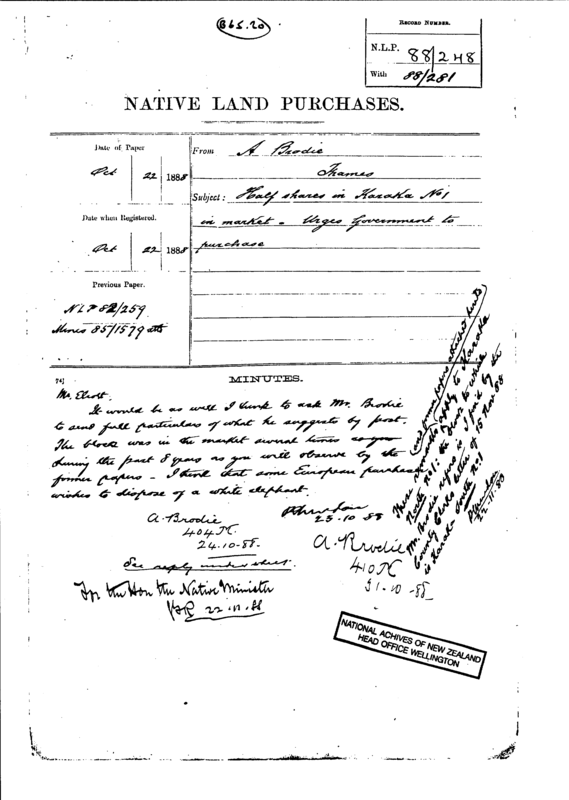 B65.20
RECORD NUMBER.
N.L.P. 88/248
With 88/281
NATIVE LAND PURCHASES.
Date of Paper
Oct 22 1888
From A Brodie
Thames
Subject: Half shares in Karaka No 1
in market - Urges Government to
purchase
Date when Registered.
Oct 22 1888
Previous Paper.
NLP 82/259
Mines 85/1579
MINUTES.
Mr.
It would be as well I think to ask Mr. Brodie
to send full particulars of what he suggests by post.
The block was in the market several times
during the past 8 years as you will observe by the
former papers - I think that some European purchaser
wishes to dispose of a white elephant.
25-10-88
A. Brodie
404
24.10.88.
See reply under sheet.
A. Brodie
410
31-10-88
For the Hon the Native Minister
22-11-88
These (and former papers attached hereto)
apply to Karaka
North No 1: the block to which
Mr. Brodie refers is I find by the
County Clerks letter of 15 Nov 88
is Karaka South No 1
22-11-88
NATIONAL ACHIVES OF NEW ZEALAND
HEAD OFFICE WELLINGTON